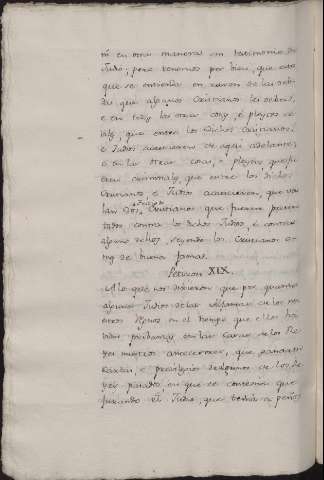 ni en otra manera sin testimonio de
Judio; pero tenemos por bien, que esto
que se entienda en razon de las deb-
das que algunos Christianos les deben,
e en todas las otras cosas, e pleytos ce-
viles, que entre los dichos Christianos,
e Judios acaescieren de aqui adelante;
e en las otras cosas, e pleytos que fue-
ren criminales que entre los dichos
Christianos e Judios acaescieren, que va-
lan dos testigos Christianos que fueren presen-
tados contra los dichos Judios, e contra
alguno dellos, seyendo los Christianos ta-
les de buena fama.
Peticion XIX.
A lo que nos dixieron que por quanto
algunos Judios de las Aljamas de los nu-
estros Regnos en el tiempo que ellos ha-
bian privanza en las Casas de los Re-
yes nuestros antecesores, que ganaron
Cartas, e privilegios de algunos de los Re-
yes pasados en que se contenia que
jurando el Judio que tenia a peños